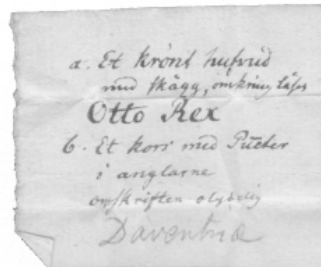 a. Et krönt hufvud
med skägg, omkring läses
Otto Rex
b. Et kors med Puncter
i anglarne
omskriften otydelig
Daventriæ